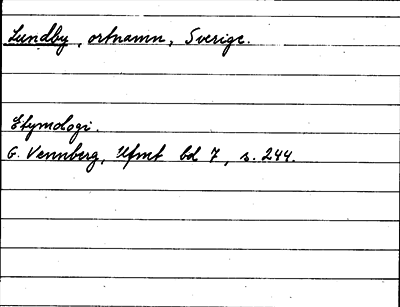 Lundby, ortnamn, Sverige.
Etymologi.
G. Vennberg, Ufmt bd 7, s. 244.